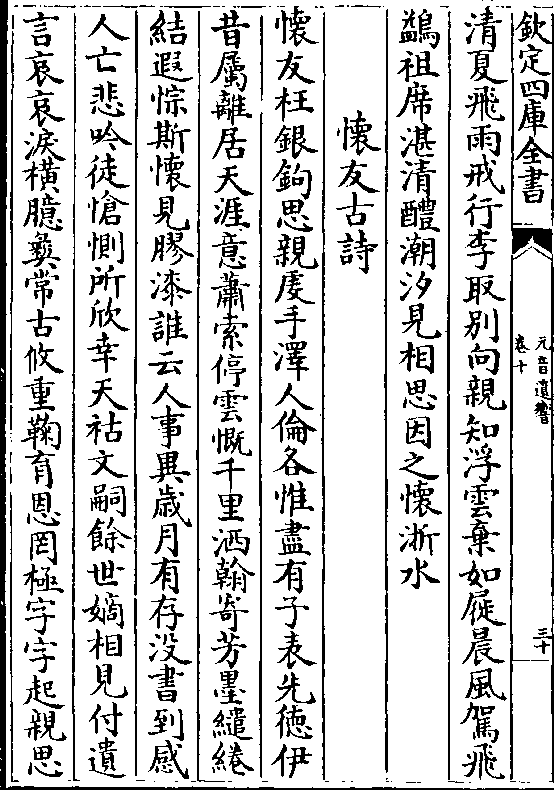 欽定四庫全書
元音遺響
卷十
三十
清夏飛雨戒行李取别向親知浮雲棄如屣晨風駕飛
鷁祖席湛清醴潮汐見相思因之懷浙水
懷友古詩
懷友枉銀鉤思親戹手澤人倫各惟盡有子表先德伊
昔屬離居天涯意蕭索停雲慨千里洒翰寄芳墨繾綣
結遐悰斯懷見膠漆誰云人事異歲月有存没書到感
人亡悲吟徒愴惻所欣幸天祜文嗣餘世嫡相見付遺
言哀哀淚橫臆彜常古攸重鞠育恩罔極字字起親思